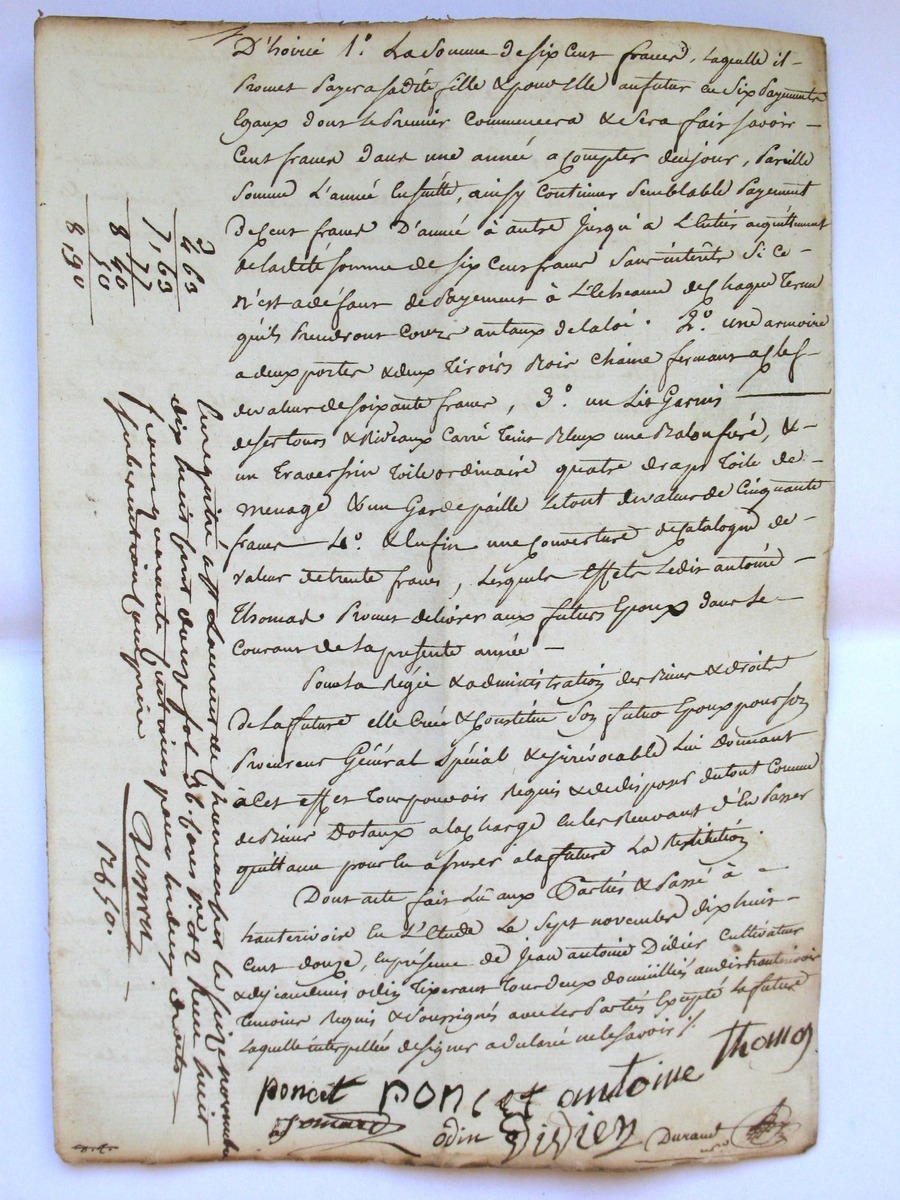 D'hoirie 1.º La Somme de Six Cent francs, Laquelle il
Promet Payer a sadite fille & pour Elle au futur en Six Payements
Egaux dont le Premier Commencera & Sera fait Savoir
Cent francs dans une année a Compter de ce jour, Pareille
Somme L'année Ensuitte, ainsy Continuer Semblable Payement
de Cent francs D'année à autre Jusqu'a L'Entier acquittement
de ladite Somme de Six Cent francs Sans intérêts Si ce
n'est a défaut de Payement à L'Echeance de Chaque Terme
qu'ils Prendront Cours au taux de la loi. 2.º une armoire
a deux portes & deux Tiroirs Bois Chaine fermant a Clef
de valeur de Soixante francs, 3.º un Lit Garnis
de ses tours & Rideaux Carré Teint Bleux une , &
un Traversin Toile ordinaire quatre draps Toile de
menage & un Gardepaille le tout de valeur de Cinquante
francs 4.º & Enfin une Couverture de Catalogne de
valeur de trente francs, Lesquels effets Ledit antoine
Thomas Promet delivrer aux futurs Epoux dans Le
Courant de La presente année
Pour La Régie & administration des Biens & droits
De La future elle Crée & Constitue Son futur Epoux pour Son
Procureur Général Spécial & irrévocable Lui Donnant
à Cet effet Tout pouvoir Requis & de disposer du tout Comme
de Biens Dotaux a la Charge En les Recevant d'En Passer
quittance pour En assurer a la future La Restitution.
Dont acte fait Lû aux Parties & Passé à
hauterivoire En L'Etude Le Sept novembre dix huit
Cent douze, En présence de Jean antoine Didier Cultivateur
& de Jean denis odin Tisserant Tous deux domiciliés audit hauterivoire
Temoins Requis & Soussignés avec Les Parties Excepté La future
Laquelle interpellée de signer a declaré ne le Savoir /.
poncet poncet antoine Thomas
odin Didier Durand
Enregistré à St Laurent de Chamousset le Seize novembre
dix huit Cent douze fol 56 Reçu huit
francs quarante Centimes pour
Subvention Comprise
2 63
7, 63
77
8 40
50
8, 90